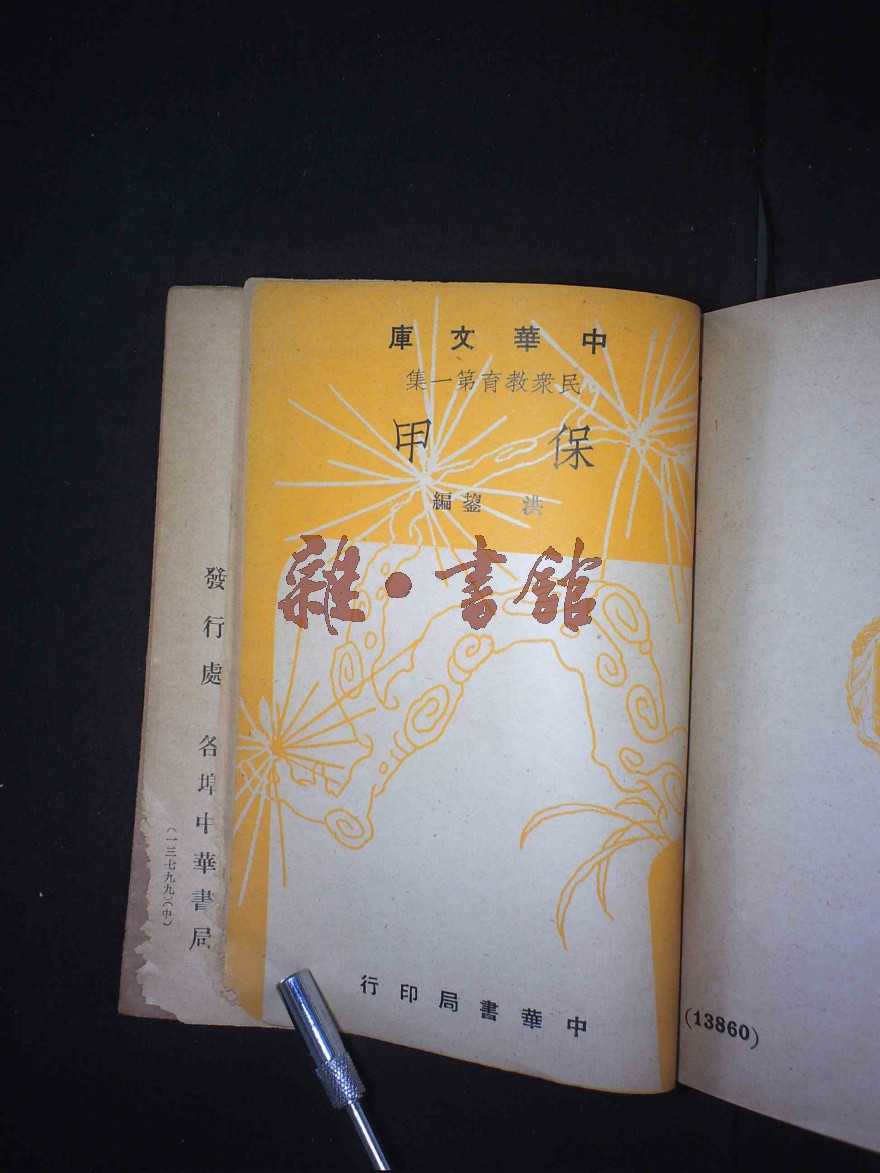 中華文庫
民衆教育第一集
保甲
洪鋆編
雜·書館
中華書局印行
發行處 各埠中華書局
(一三七九九)(中)
(13860)